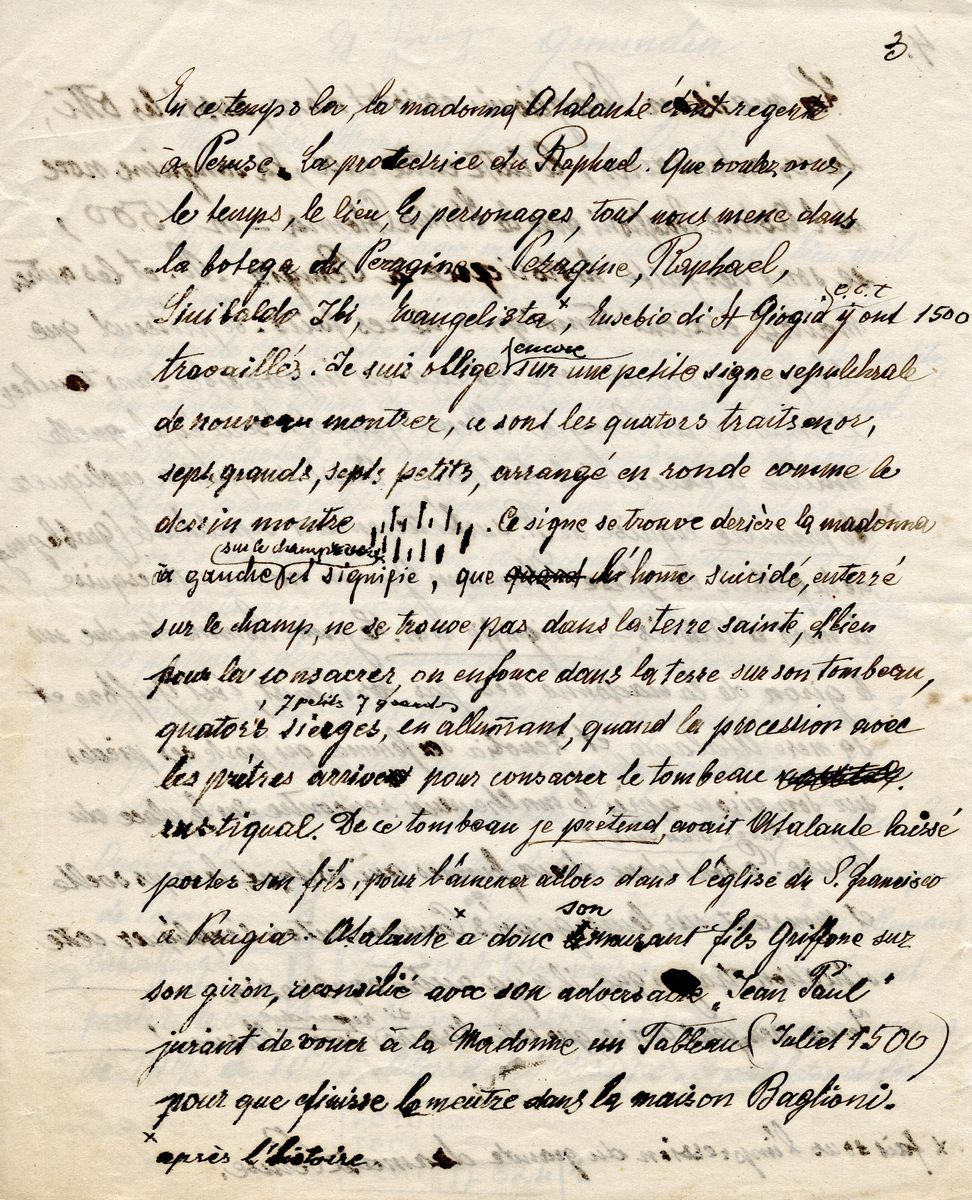 3
En ce temps la, la madonna Atalante était regente
à Peruse. La protedrice du Raphael. Que voulez vous,
le temps, le lieu, les personages, tout nous mene dans
la botega du Peragine Peragine, Raphael,
Sinibaldo Ibi, Evangelista x, Eusebio di St Giogio e.c.t y ont 1500
travaillés. Je suis oblige encore sur une petite signe sepulchrale
de nouveau montrer, ce sont les quators traits en or,
sept grands, sept petits, arrangé en ronde comme le
dessin montre . Ce signe se trouve derière la madonna
sur le champ
à gauche et signifie, que quand l'home suicidé, enterré
sur le champ, ne se trouve pas dans la terre sainte, et bien
pour la consacrer, on enfonce dans la terre sur son tombeau,
7 petits 7 grands
quators sierges, en allumant, quand la procession avec
les prétres arrive pour consacrer le tombeau
rustiqual. De ce tombeau je prétend, avait Atalante laissé
porter son fils, pour l'amener allors dans l'église du S. francisco
à Perugia. Atalante x a donc son mourant fils Griffone sur
son giron, reconsilié avec son adversaire "Jean Paul"
jurant de vouer à la Madonne un Tableau (Juliet 1500)
pour que finisse le meutre dans la maison Baglioni.
x après l'histoire